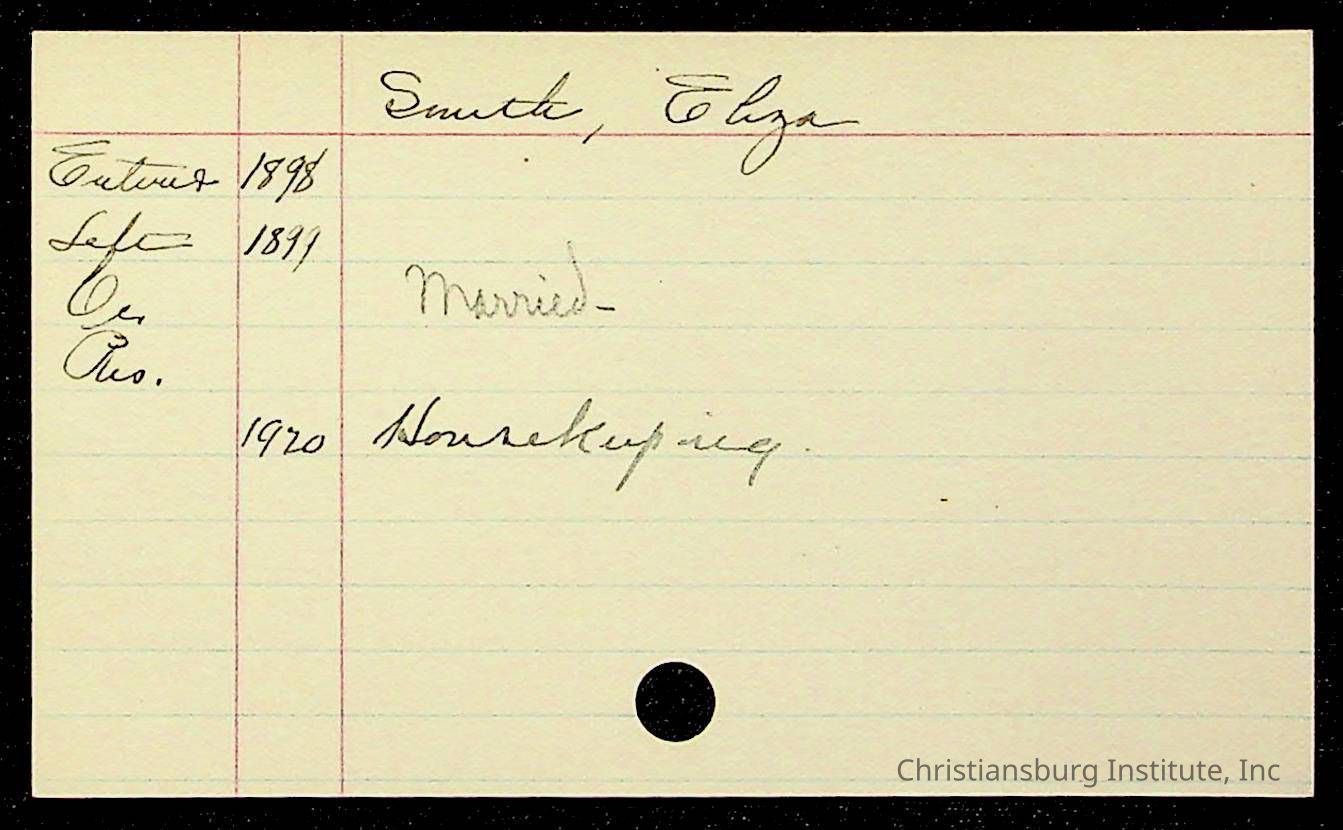 Smith, Eliza
Entered 1898
Left 1899
Oc.
Married-
Res.
1920 Housekeeping.
Christiansburg Institute, Inc